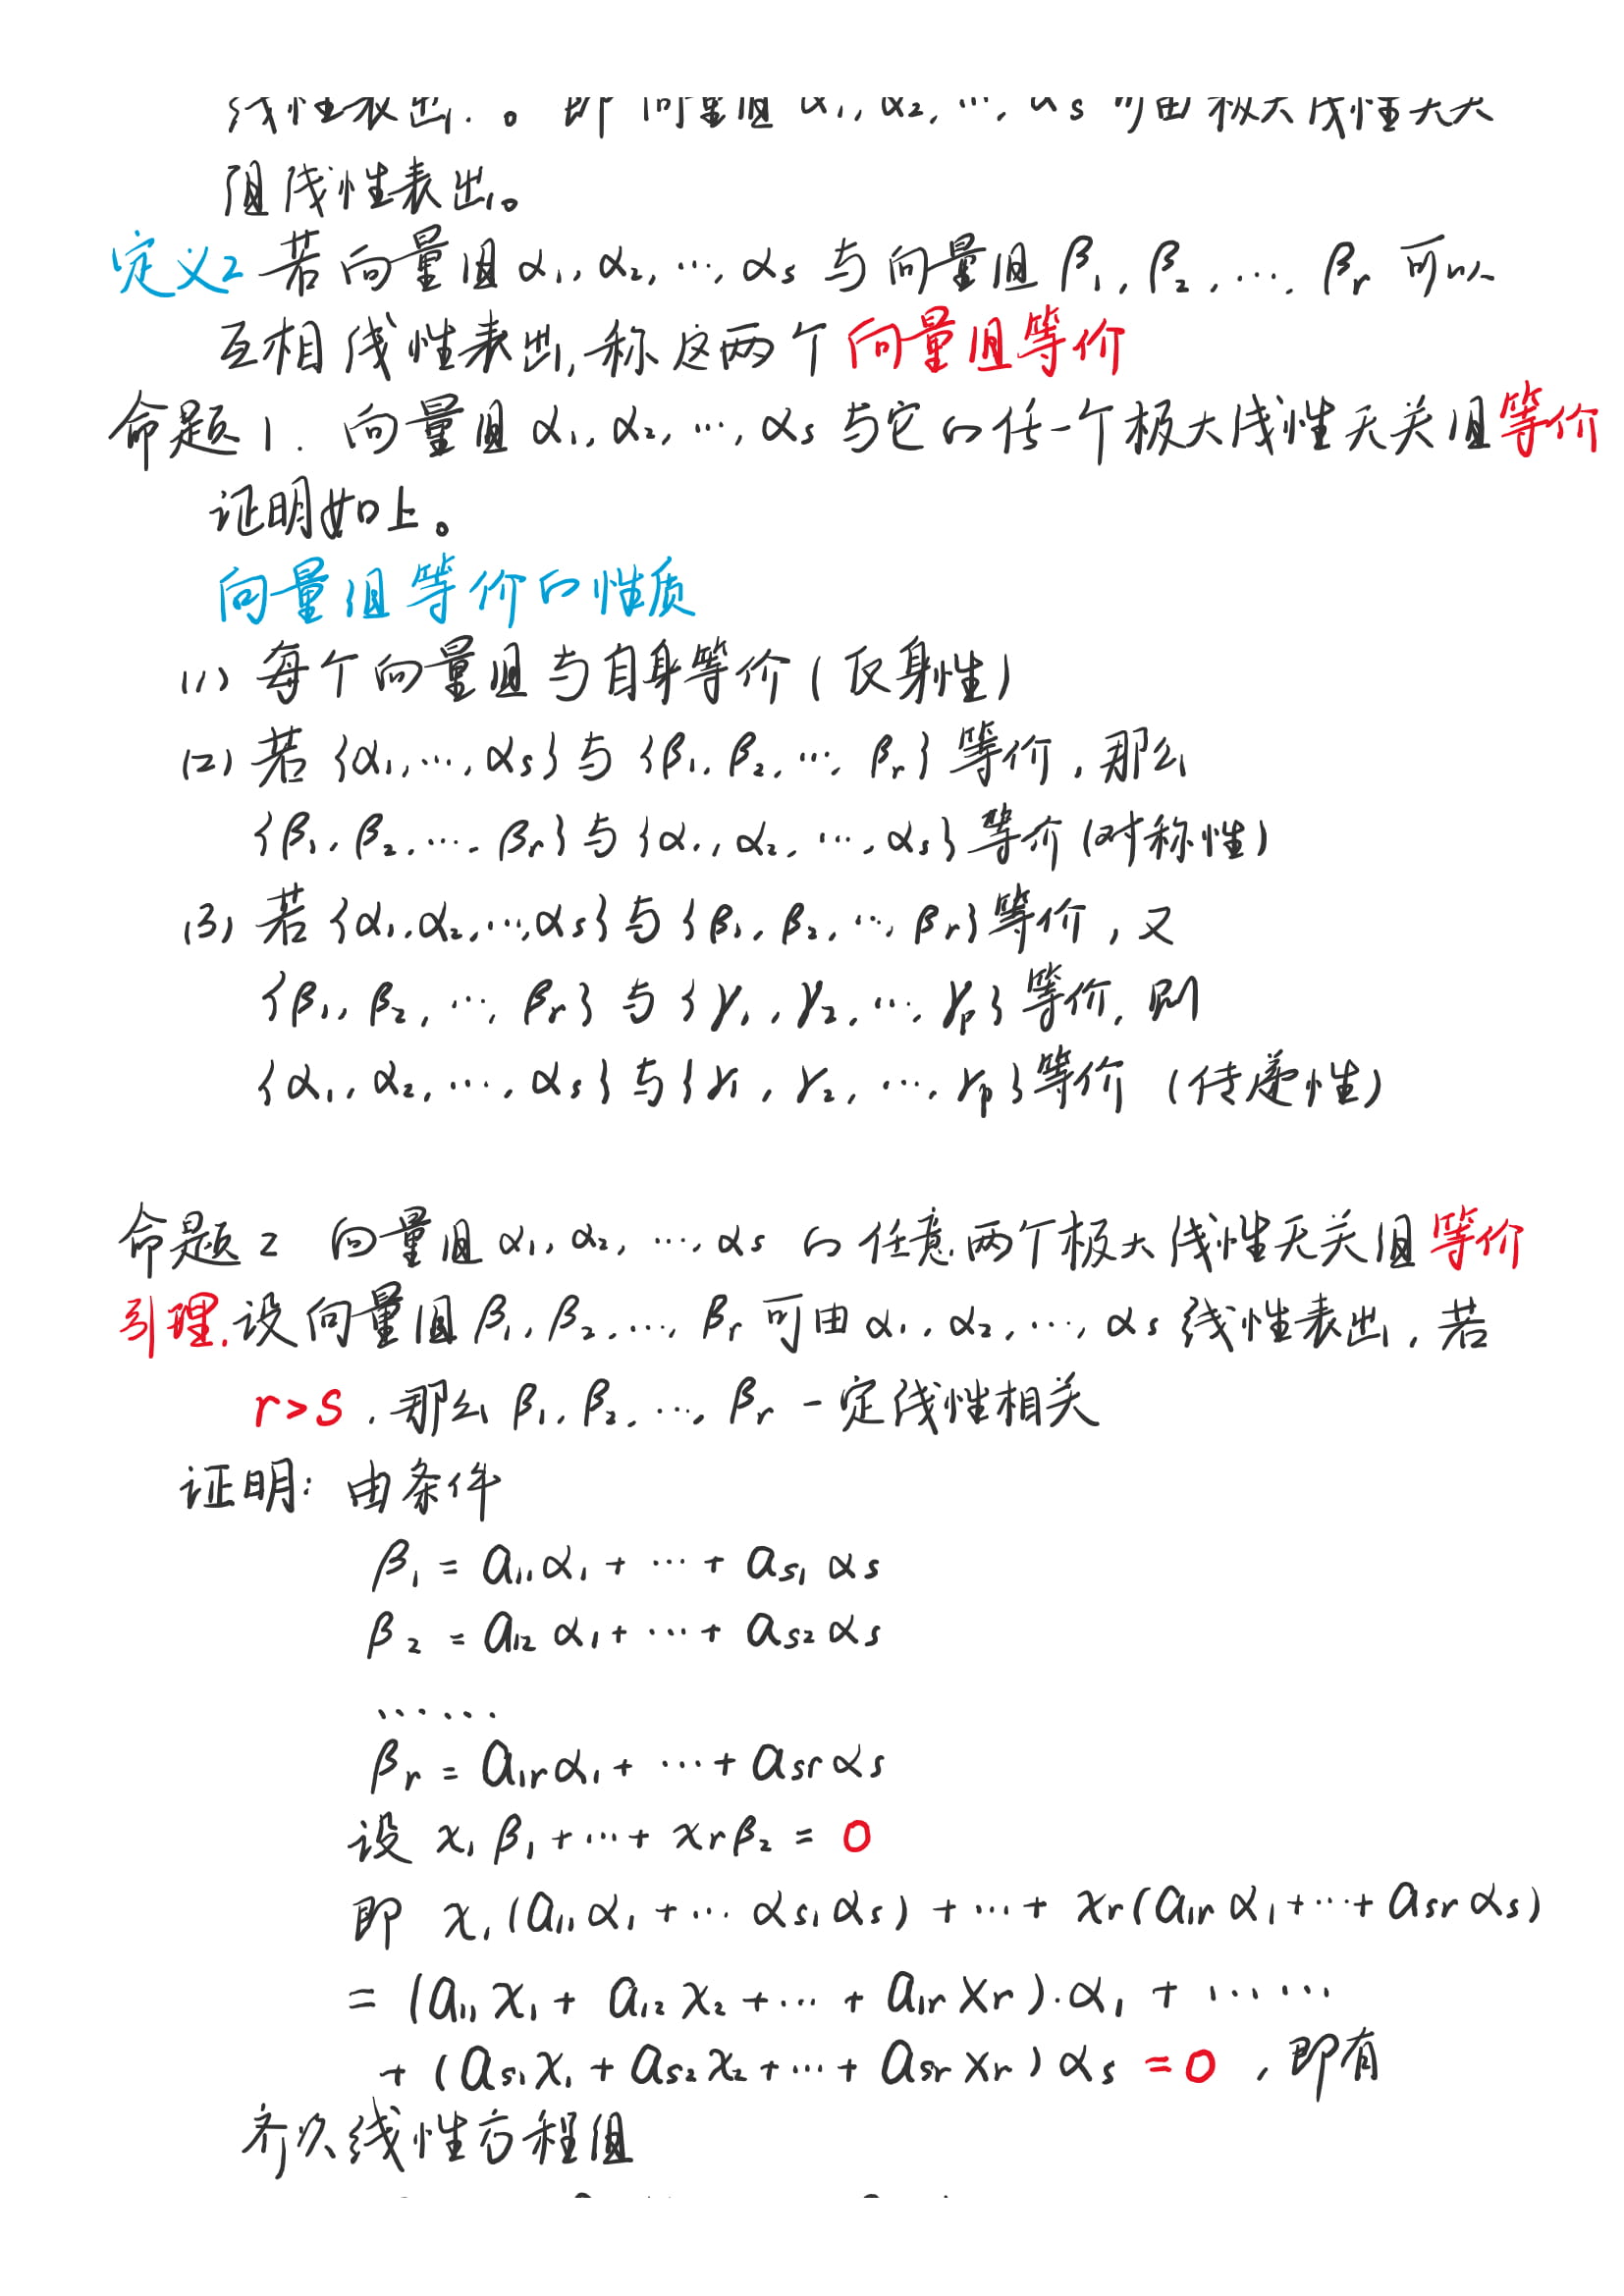 线性表出.。即向量组 α₁, α₂, …, αs 可由极大线性无关
组线性表出。
定义2 若向量组 α₁, α₂, …, αs 与向量组 β₁, β₂, …, βr 可以
互相线性表出, 称这两个向量组等价
命题1. 向量组 α₁, α₂, …, αs 与它的任一个极大线性无关组等价
证明如上。
向量组等价的性质
(1) 每个向量组与自身等价 (反身性)
(2) 若 {α₁, …, αs} 与 {β₁, β₂, …, βr} 等价, 那么
{β₁, β₂, …, βr} 与 {α₁, α₂, …, αs} 等价 (对称性)
(3) 若 {α₁, α₂, …, αs} 与 {β₁, β₂, …, βr} 等价, 又
{β₁, β₂, …, βr} 与 {γ₁, γ₂, …, γp} 等价, 则
{α₁, α₂, …, αs} 与 {γ₁, γ₂, …, γp} 等价 (传递性)
命题2 向量组 α₁, α₂, …, αs 的任意两个极大线性无关组等价
引理. 设向量组 β₁, β₂, …, βr 可由 α₁, α₂, …, αs 线性表出, 若
r>s, 那么 β₁, β₂, …, βr 一定线性相关
证明: 由条件
β₁ = a₁₁α₁ + … + as₁αs
β₂ = a₁₂α₁ + … + as₂αs
……
βr = a₁rα₁ + … + asrαs
设 x₁β₁ + … + xrβ₂ = 0
即 x₁(a₁₁α₁ + … αs₁αs) + … + xr(a₁rα₁ + … + asrαs)
= (a₁₁x₁ + a₁₂x₂ + … + a₁rxr)·α₁ + ……
+ (as₁x₁ + as₂x₂ + … + asrxr)αs = 0, 即有
齐次线性方程组